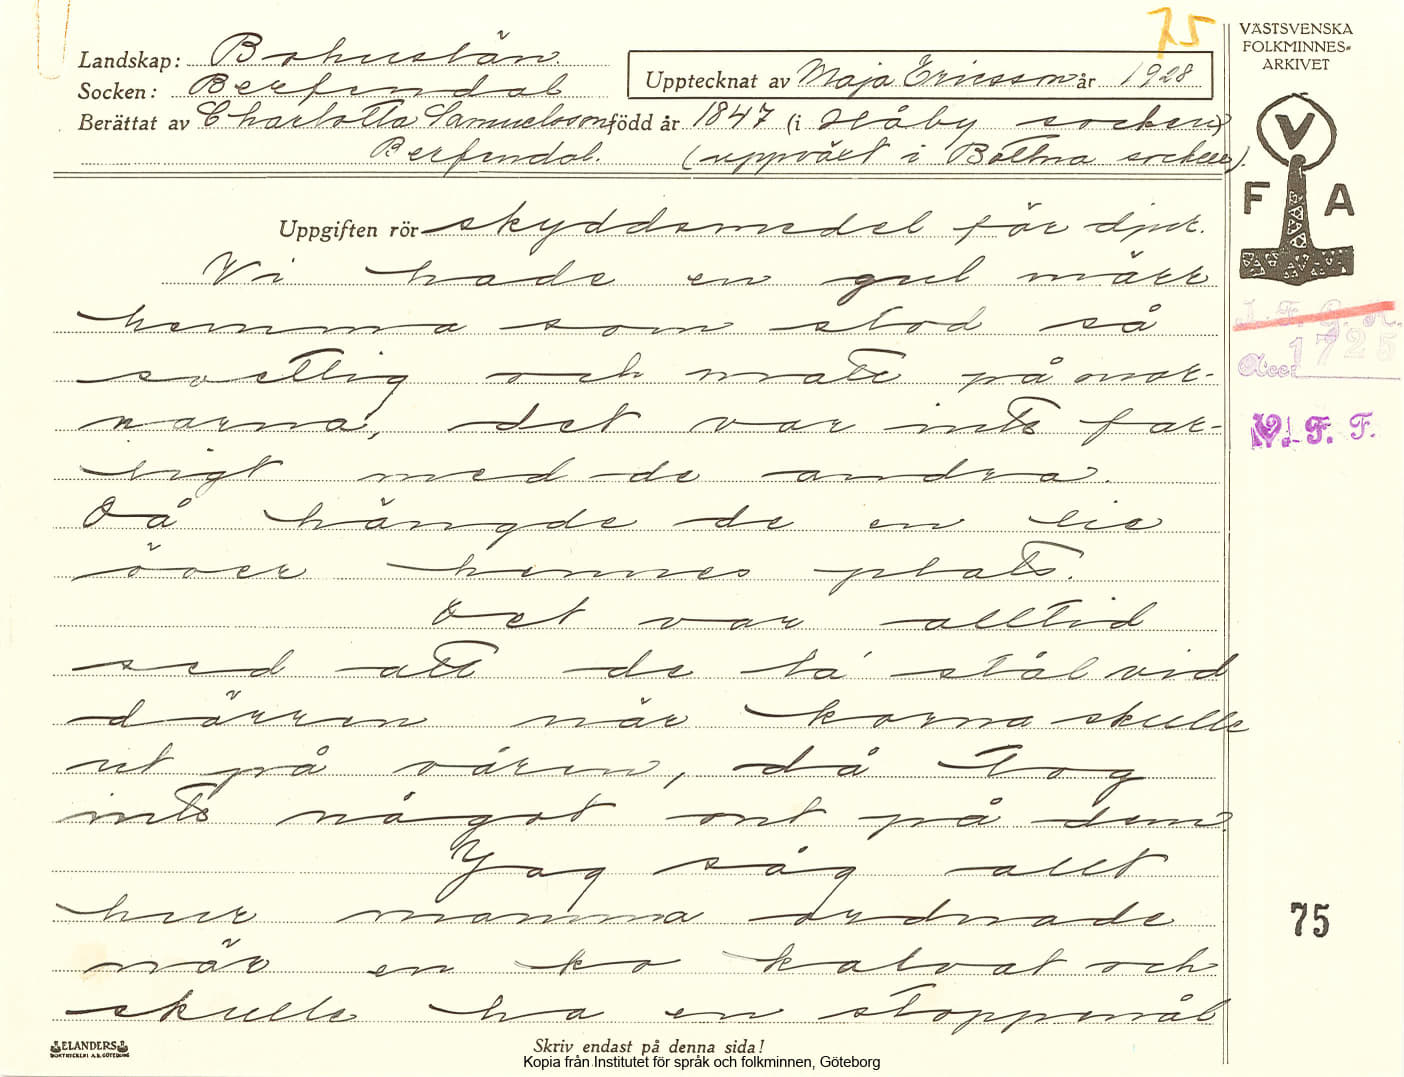 75
VÄSTSVENSKA
FOLKMINNES-
ARKIVET
Landskap: Bohuslän
Upptecknat av Maja Ericsson år 1928
Socken: Berfendal
Berättat av Charlotta Samuelsson född år 1847 (i Håby socken)
Berfendal. (uppväxt i Bottna socken).
V
F A
Uppgiften rör skyddsmedel för djur.
Vi hade en gul märr
hemma som stod så
svettig och matt på mor-
narna, det var inte far-
ligt med de andra.
Då hängde de en lie
över hennes plats.
Det var alltid
sed att de la' stål vid
dörren när korna skulle
ut på våren, då tog
inte något ont på dem.
Jag såg allt
hur mamma ordnade
när en ko kalvat och
skulle ha en stoppmål
I. F. G. H.
Acc: 1725
V. F. F.
75
ELANDERS
BOKTRYCKERI A.B. GÖTEBORG
Skriv endast på denna sida!
Kopia från Institutet för språk och folkminnen, Göteborg